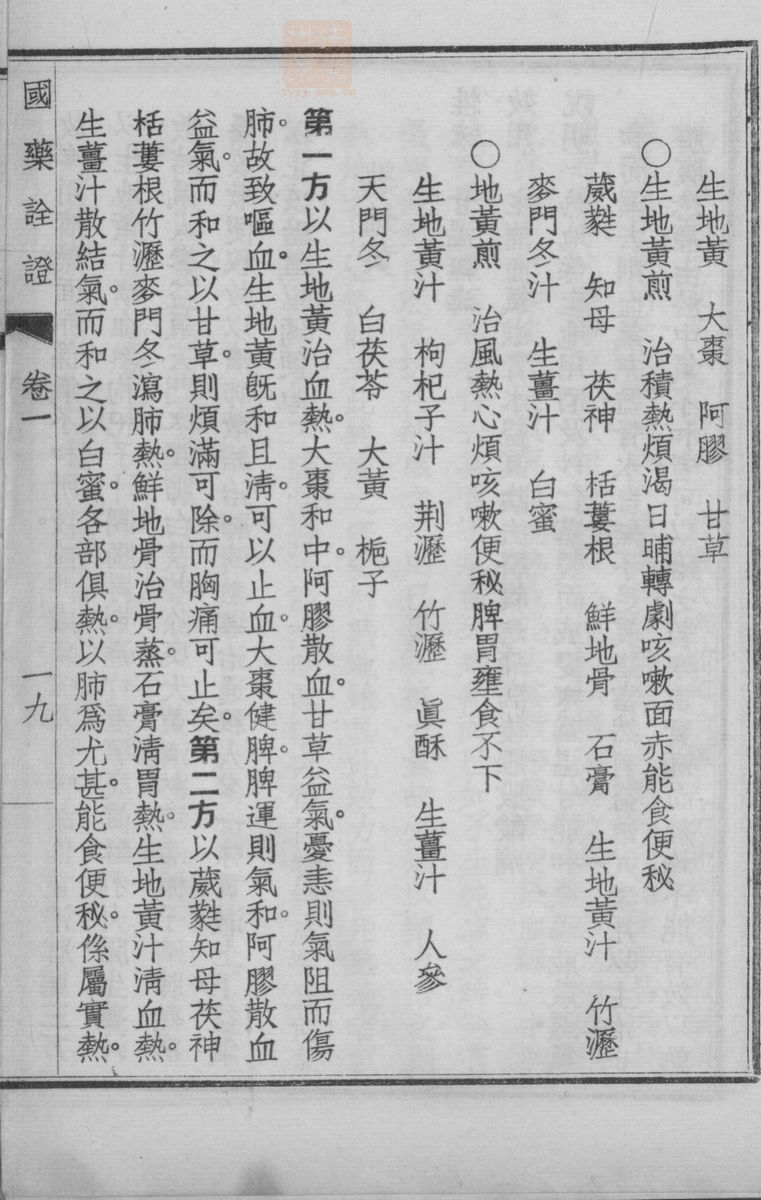 生地黃　大棗　阿膠　甘草
〇生地黃煎　治積熱煩渴日晡轉劇咳嗽面赤能食便秘
葳蕤　知母　茯神　栝蔞根　鮮地骨　石膏　生地黃汁　竹瀝
麥門冬汁　生薑汁　白蜜
〇地黃煎　治風熱心煩咳嗽便秘脾胃壅食不下
生地黃汁　枸杞子汁　荆瀝　竹瀝　眞酥　生薑汁　人參
天門冬　白茯苓　大黃　梔子
第一方以生地黃治血熱。大棗和中。阿膠散血。甘草益氣。憂恚則氣阻而傷
肺。故致嘔血。生地黃旣和且淸。可以止血。大棗健脾。脾運則氣和。阿膠散血
益氣。而和之以甘草。則煩滿可除。而胸痛可止矣。第二方以葳蕤知母茯神
栝蔞根竹瀝麥門冬瀉肺熱。鮮地骨治骨蒸。石膏淸胃熱。生地黃汁淸血熱。
生薑汁散結氣。而和之以白蜜。各部俱熱。以肺爲尤甚。能食便秘。係屬實熱。
國藥詮證　卷一　一九